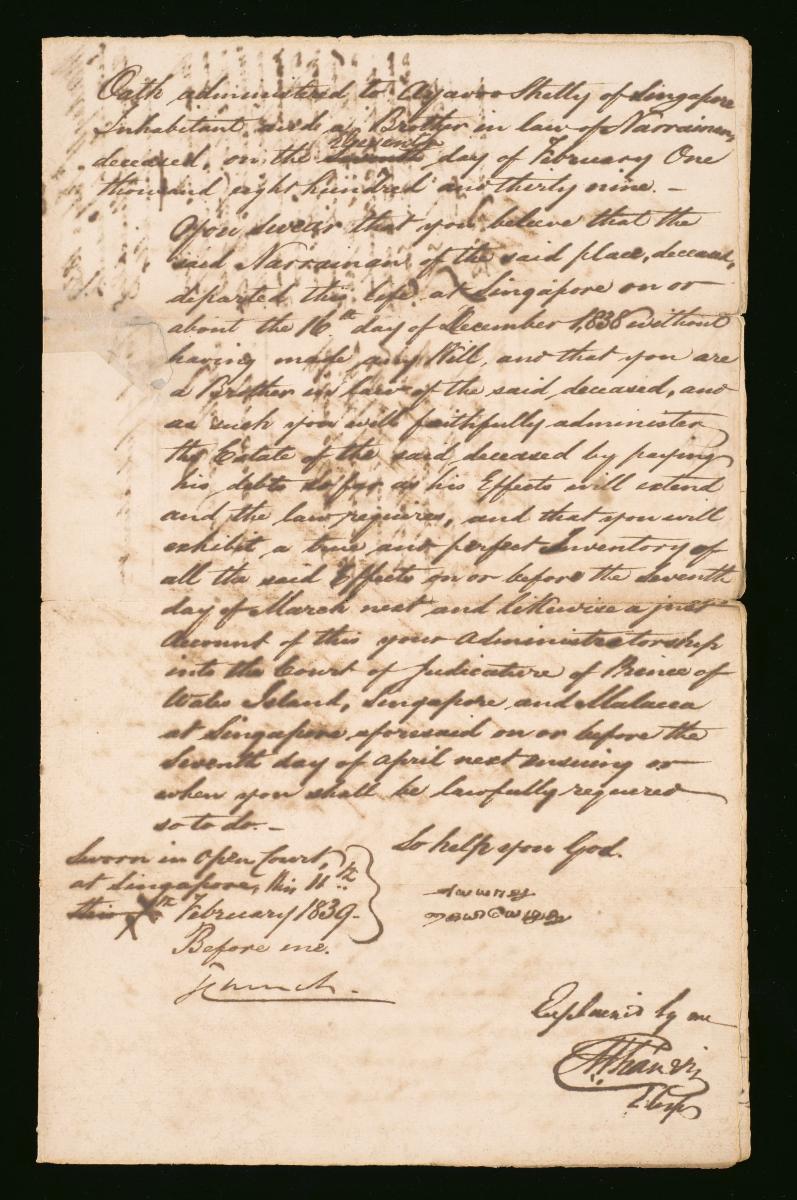 Oath administered to Ayavoo Shetty of Singapore
Inhabitant, and a Brother in law of Narrainan,
deceased, on the Eleventh day of February One
thousand eight hundred and thirty nine. –
You swear that you believe that the
said Narrainan of the said place, deceased,
departed this life at Singapore on or
about the 16th day of December 1838 without
having made any Will, and that you are
a Brother in law of the said deceased, and
as such you will faithfully administer
the Estate of the said deceased by paying
his debts so far as his Effects will extend
and the law requires, and that you will
exhibit a true and perfect Inventory of
all the said Effects on or before the seventh
day of March next and likewise a just
Account of this your administratorship
into the Court of Judicature of Prince of
Wales Island, Singapore and Malacca
at Singapore aforesaid on or before the
Seventh day of April next ensuing or
when you shall be lawfully required
so to do. –
So help you God.
Sworn in open Court,
at Singapore, this 11th
February 1839.
Before me.
Explained by me